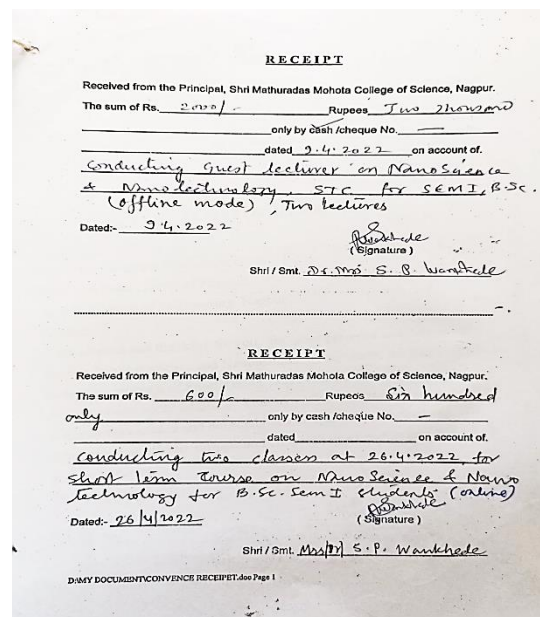 RECEIPT
Received from the Principal, Shri Mathuradas Mohota College of Science, Nagpur.
The sum of Rs. 2000/- Rupees Two Thousand
only by cash /cheque No. —
dated 9.4.2022 on account of.
Conducting Guest lecturer on NanoScience
& Nanotechnology. STC for SEM I, B.Sc.
(offline mode), Two lectures
Dated:- 9.4.2022
(Signature )
Shri / Smt. Dr. Mrs S. P. Wankhede
RECEIPT
Received from the Principal, Shri Mathuradas Mohota College of Science, Nagpur.
The sum of Rs. 600/- Rupees Six hundred
only only by cash /cheque No. —
dated on account of.
Conducting two classes at 26.4.2022, for
Short Term Course on NanoScience & Nano
technology for B.Sc. Sem I students (online)
Dated:- 26/4/2022
(Signature )
Shri / Smt. Mrs/Dr S.P. Wankhede
D:\MY DOCUMENT\CONVENCE RECEIPET.doc Page 1